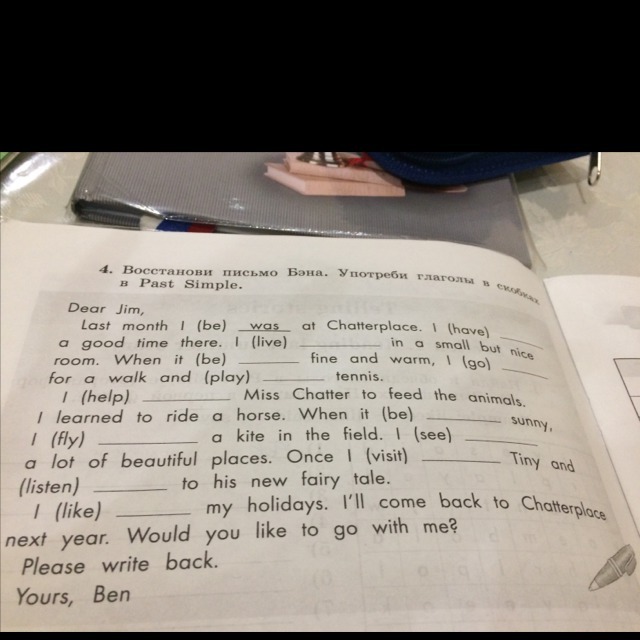 4. Восстанови письмо Бэна. Употреби глаголы в скобках
в Past Simple.
Dear Jim,
Last month I (be) was at Chatterplace. I (have) ____
a good time there. I (live) ____ in a small but nice
room. When it (be) ____ fine and warm, I (go) ____
for a walk and (play) ____ tennis.
I (help) ____ Miss Chatter to feed the animals.
I learned to ride a horse. When it (be) ____ sunny,
I (fly) ____ a kite in the field. I (see) ____
a lot of beautiful places. Once I (visit) ____ Tiny and
(listen) ____ to his new fairy tale.
I (like) ____ my holidays. I'll come back to Chatterplace
next year. Would you like to go with me?
Please write back.
Yours, Ben